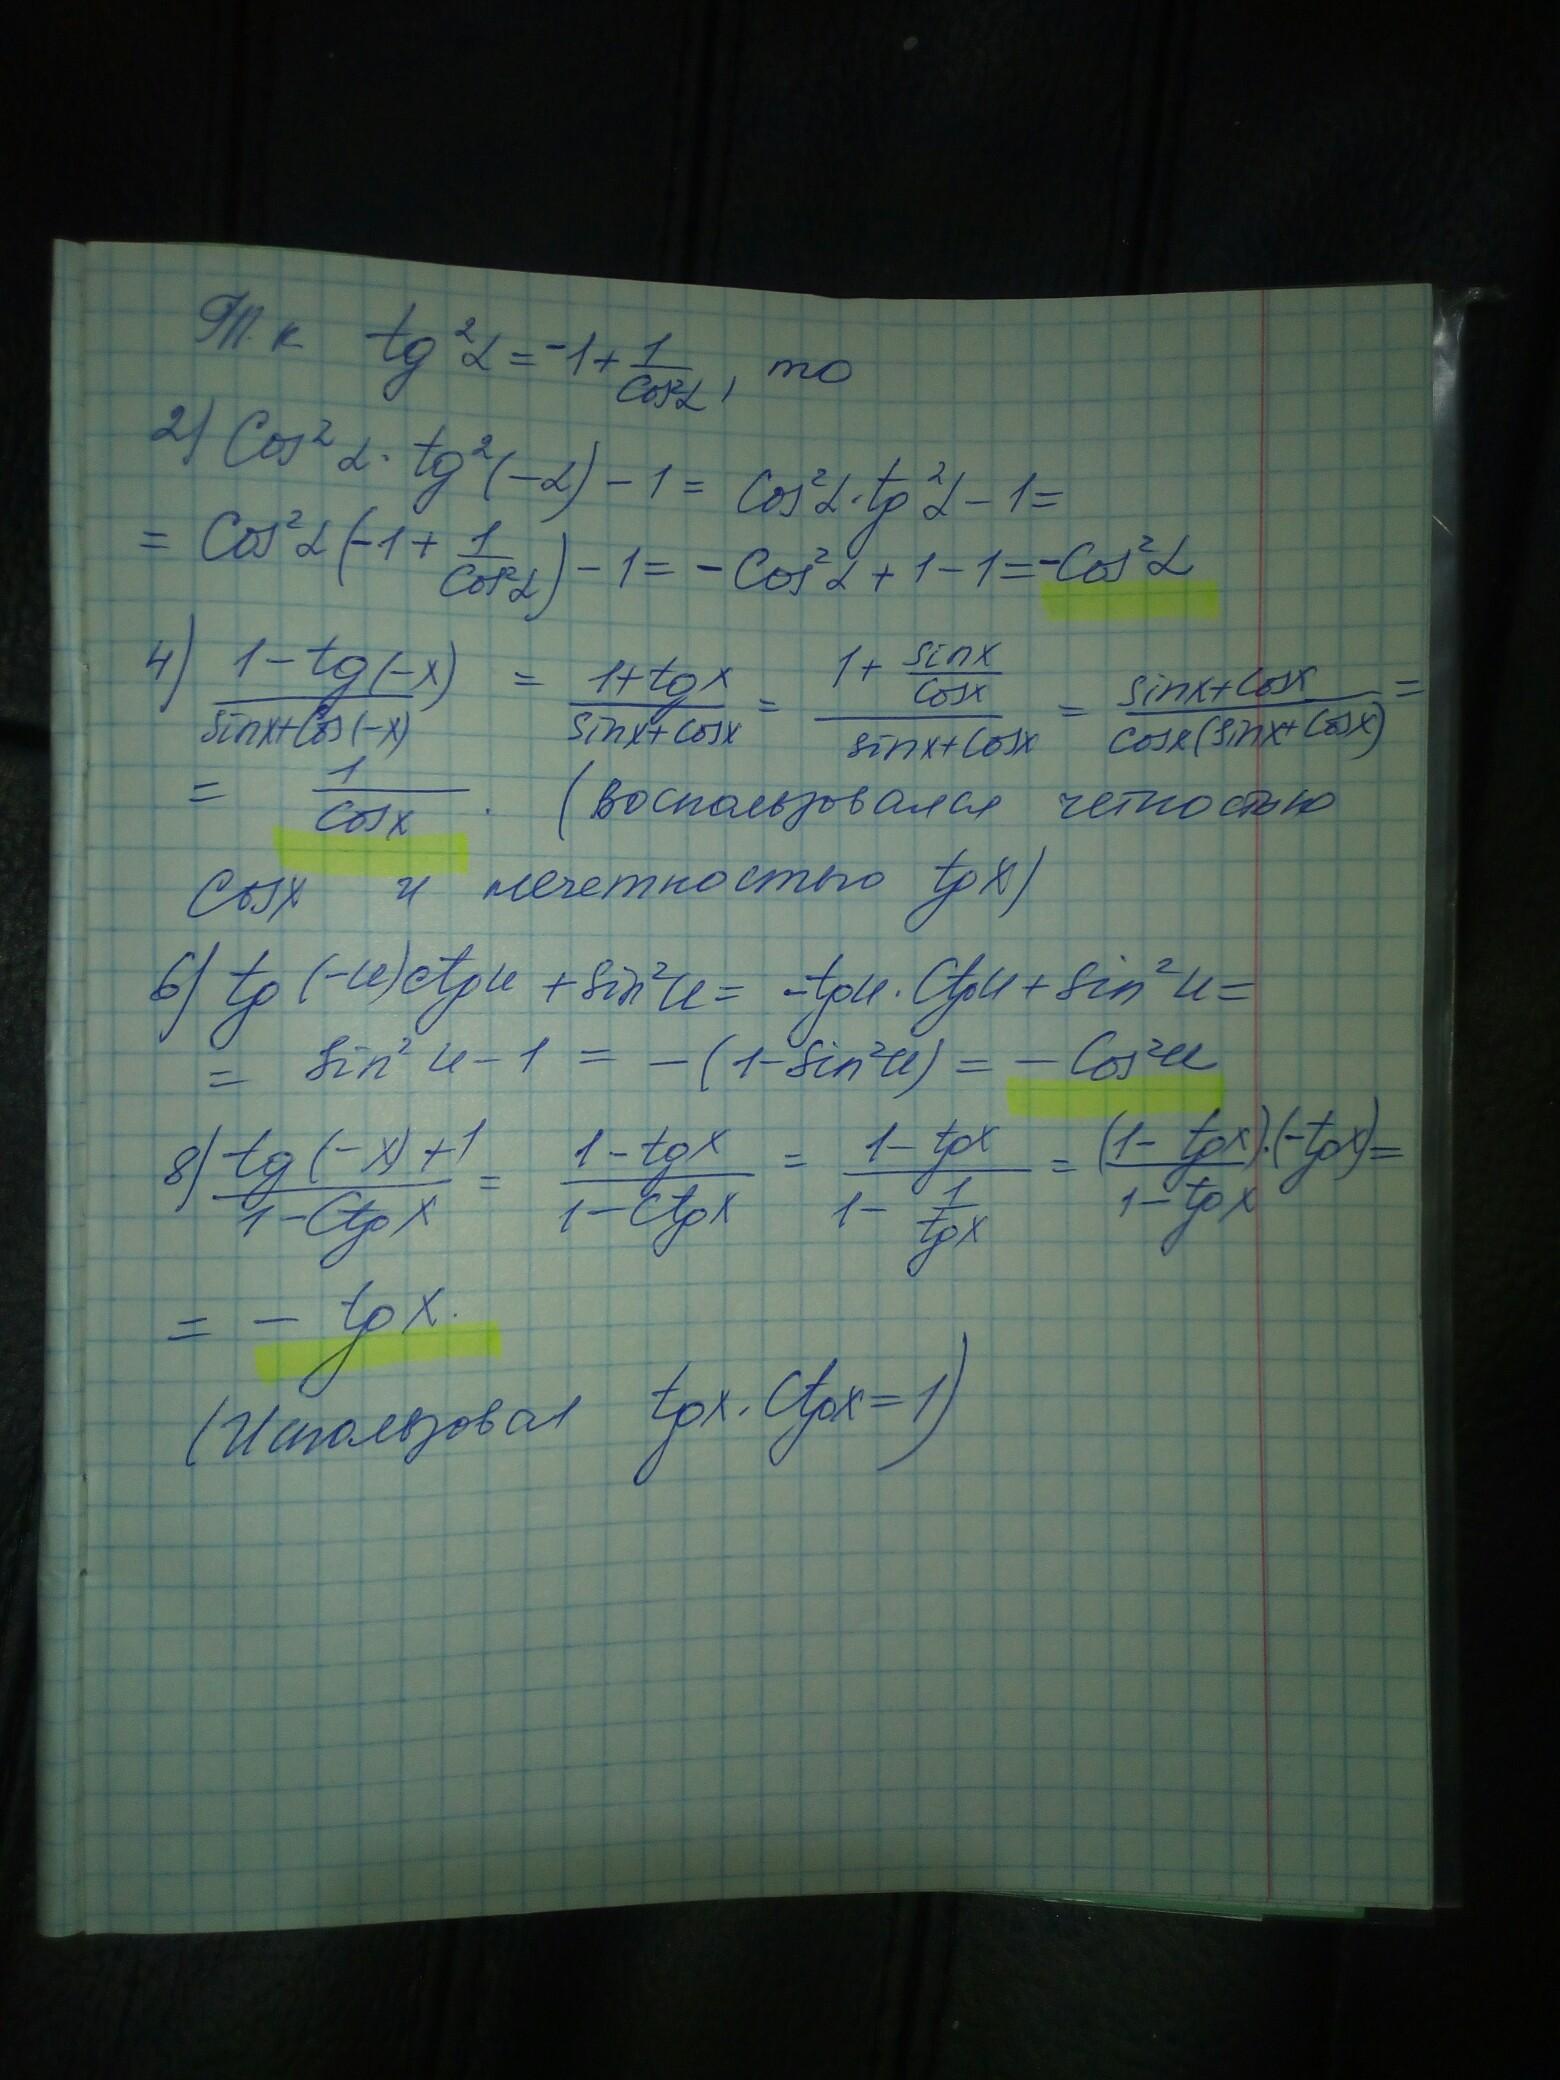 Т.к tg²α = -1 + 1/cos²α, то
2) Cos²α · tg²(-α) - 1 = Cos²α · tg²α - 1 =
= Cos²α (-1 + 1/Cos²α) - 1 = - Cos²α + 1 - 1 = -Cos²α
4) (1 - tg(-x))/(sinx + Cos(-x)) = (1 + tgx)/(sinx + cosx) = (1 + sinx/cosx)/(sinx + cosx) = (sinx + cosx)/(cosx(sinx + cosx)) =
= 1/cosx. (Воспользовался четностью
Cosx и нечетностью tgx)
6) tg(-u)ctgu + sin²u = -tgu · Ctgu + sin²u =
= sin²u - 1 = -(1 - sin²u) = - Cos²u
8) (tg(-x) + 1)/(1 - Ctgx) = (1 - tgx)/(1 - Ctgx) = (1 - tgx)/(1 - 1/tgx) = (1 - tgx)·(-tgx)/(1 - tgx) =
= - tgx.
(Использовал tgx · Ctgx = 1)